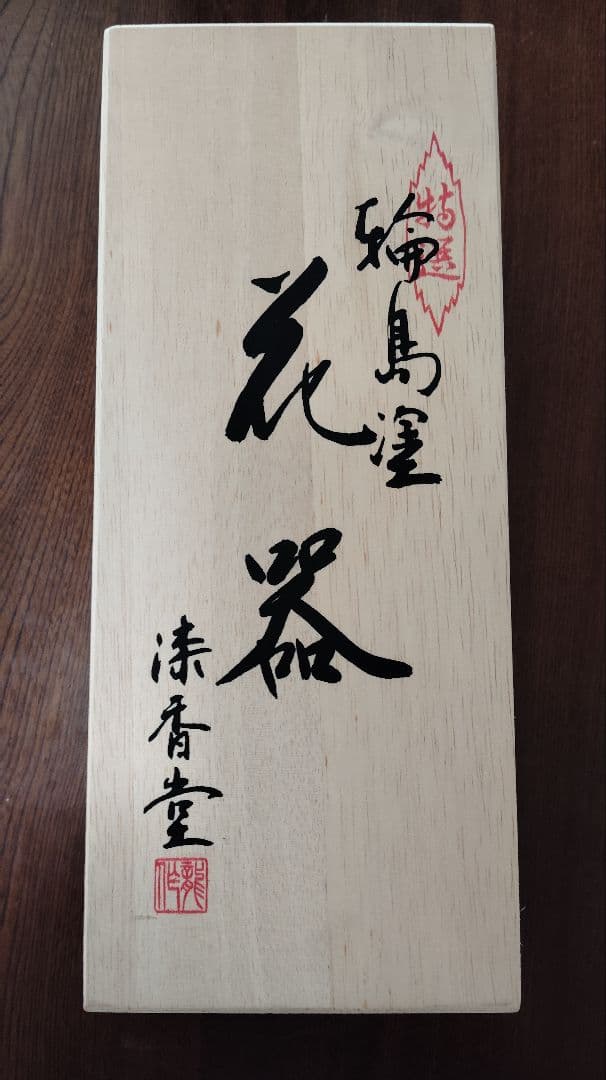 特選
輪島塗
花器
漆香堂